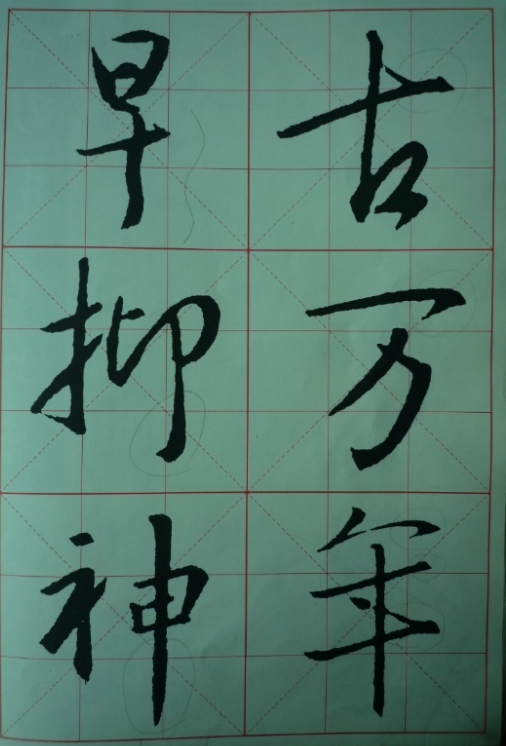 古万年
早抑神